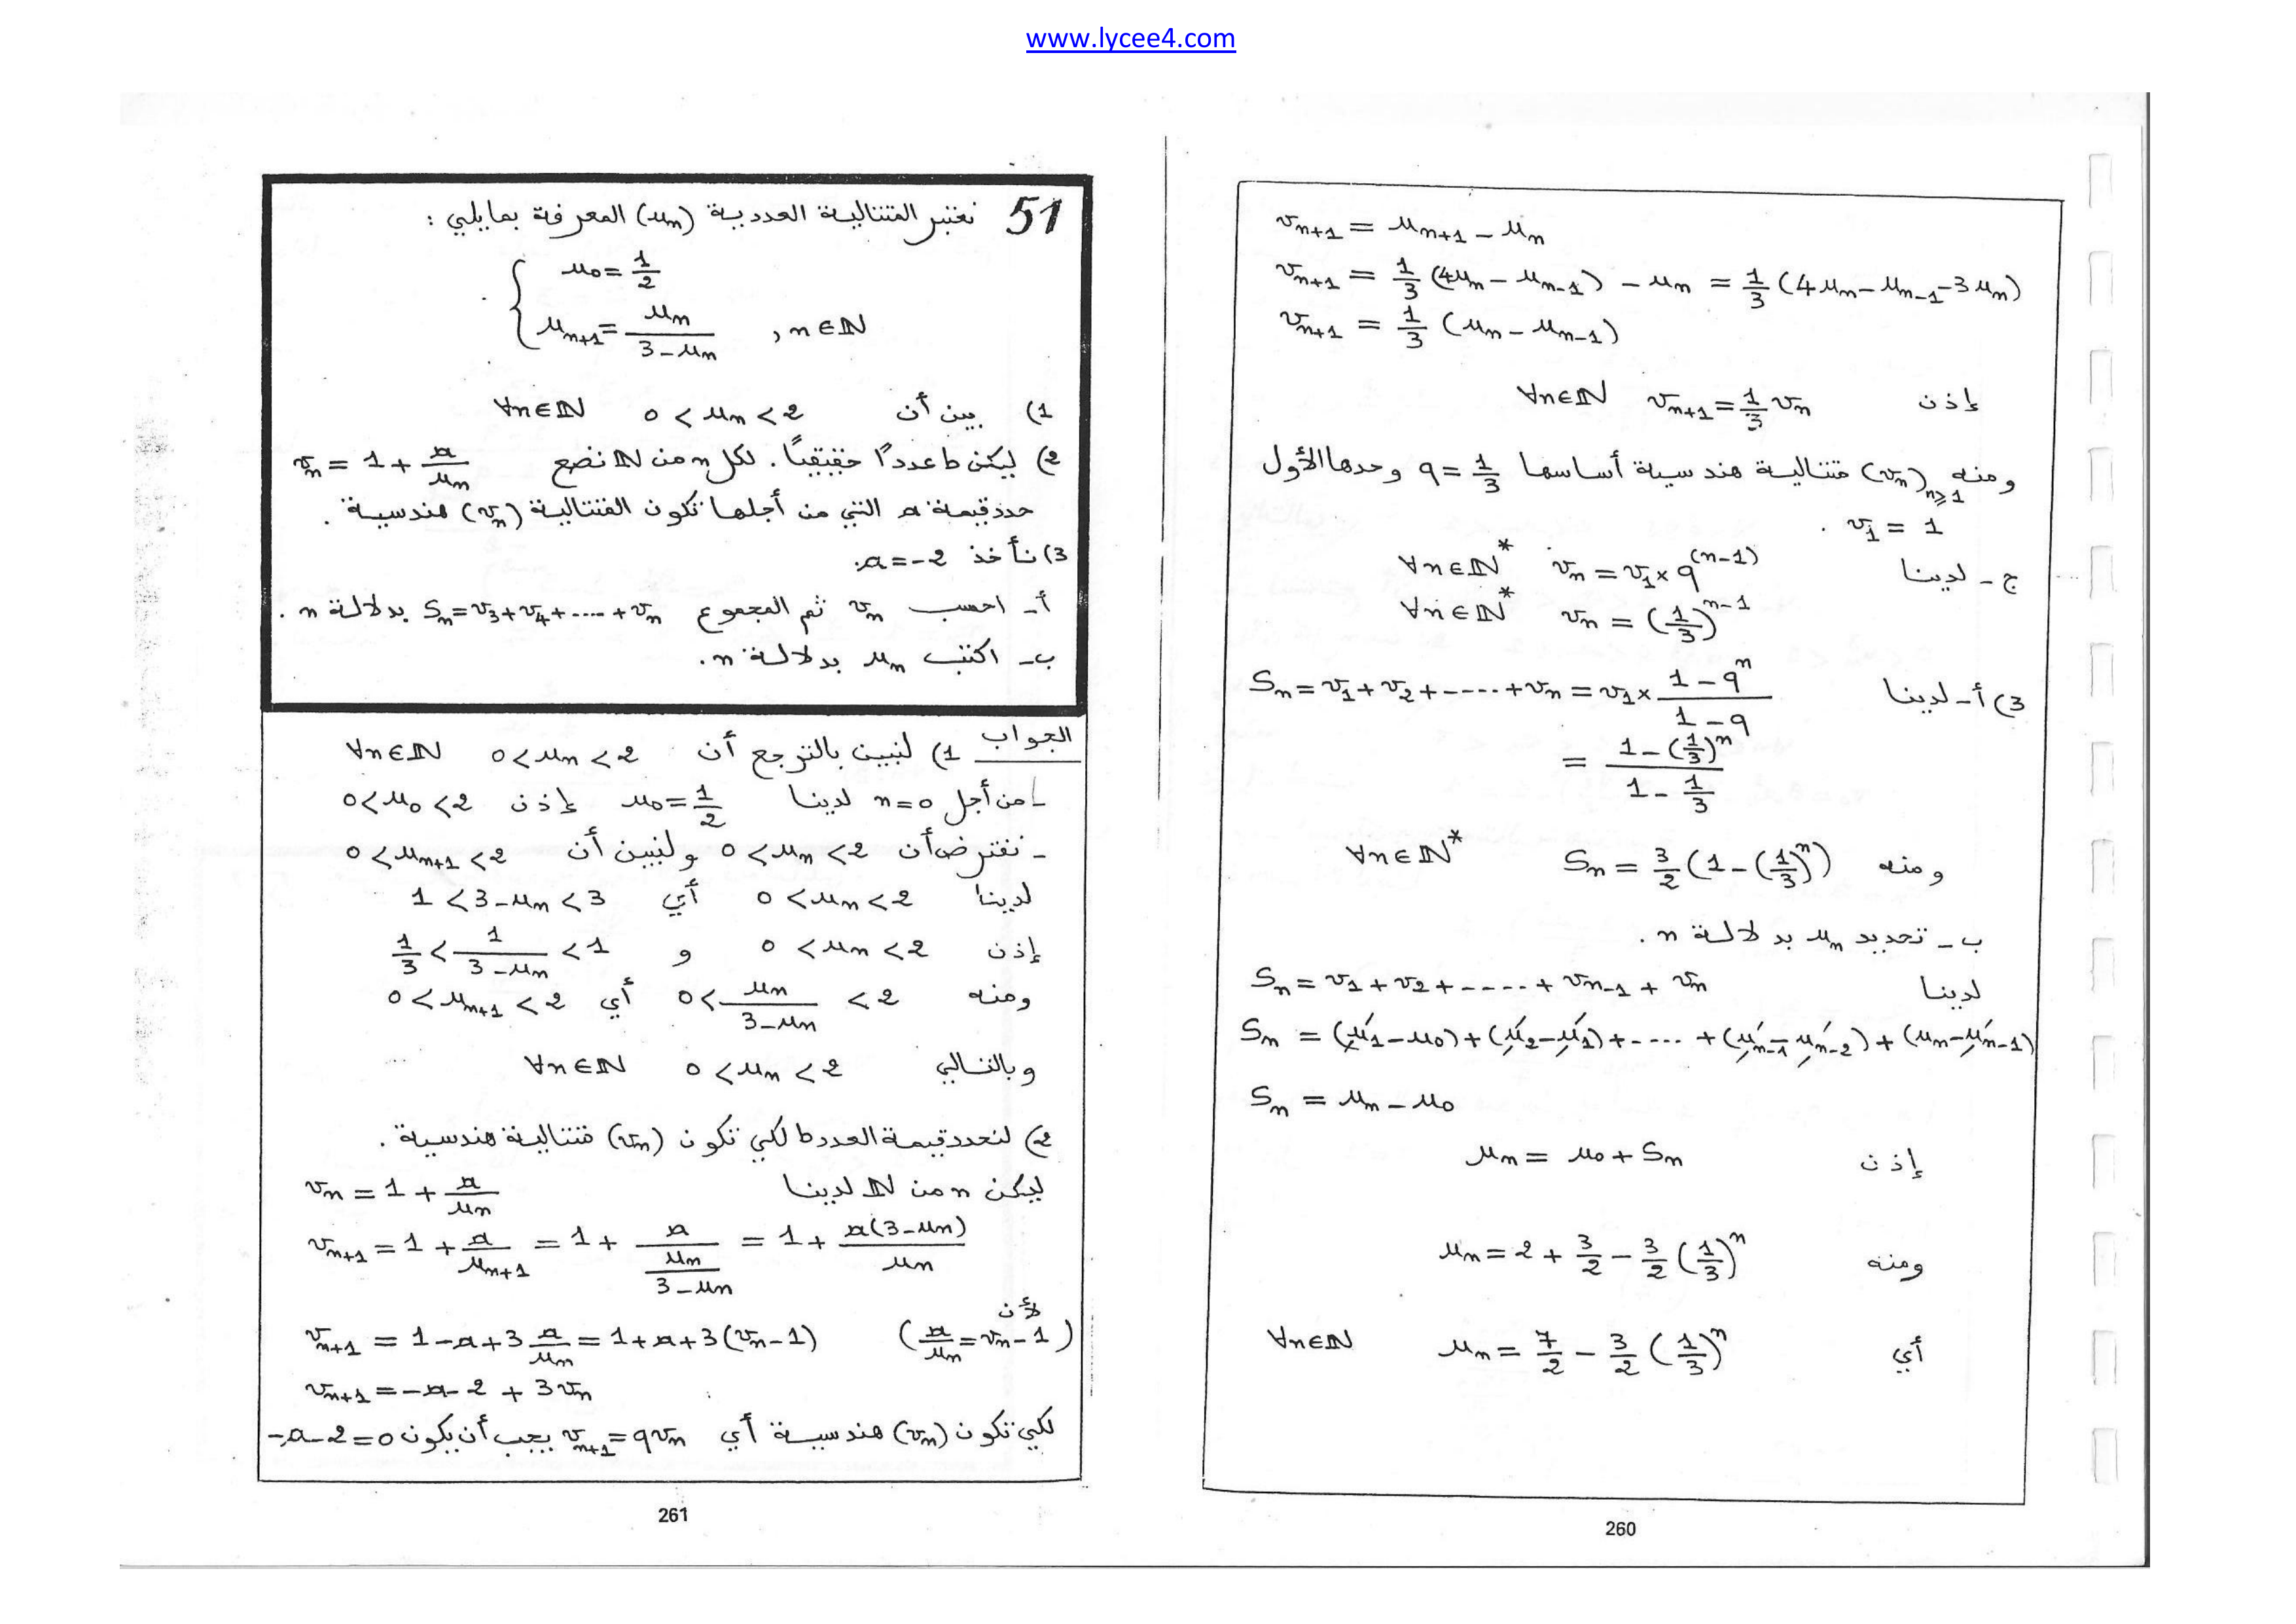 www.lycee4.com
v_{n+1} = u_{n+1} - u_n
v_{n+1} = 1/3 (4u_n - u_{n-1}) - u_n = 1/3 (4u_n - u_{n-1} - 3u_n)
v_{n+1} = 1/3 (u_n - u_{n-1})
إذن v_{n+1} = 1/3 v_n ∀n∈ℕ
ومنه (v_n)_{n≥1} متتالية هندسية أساسها q = 1/3 وحدها الأول
v_1 = 1 .
ج - لدينا v_n = v_1 × q^{(n-1)} ∀n∈ℕ*
v_n = (1/3)^{n-1} ∀n∈ℕ*
3) أ - لدينا S_n = v_1 + v_2 + ---- + v_n = v_1 × (1 - q^n)/(1 - q)
= (1 - (1/3)^n)/(1 - 1/3)
ومنه S_n = 3/2 (1 - (1/3)^n) ∀n∈ℕ*
ب - تحديد u_n بدلالة n .
لدينا S_n = v_1 + v_2 + ----- + v_{n-1} + v_n
S_n = (u_1 - u_0) + (u_2 - u_1) + ---- + (u_{n-1} - u_{n-2}) + (u_n - u_{n-1})
S_n = u_n - u_0
إذن u_n = u_0 + S_n
ومنه u_n = 2 + 3/2 - 3/2 (1/3)^n
أي u_n = 7/2 - 3/2 (1/3)^n ∀n∈ℕ
260
51 نعتبر المتتالية العددية (u_n) المعرفة بمايلي :
u_0 = 1/2
u_{n+1} = u_n/(3 - u_n) , n∈ℕ
1) بين أن 0 < u_n < 2 ∀n∈ℕ
2) ليكن a عدداً حقيقياً . لكل n من ℕ نضع v_n = 1 + a/u_n
حدد قيمة a التي من أجلها تكون المتتالية (v_n) هندسية .
3) نأخذ a = -2.
أ - احسب v_n ثم المجموع S_n = v_3 + v_4 + ---- + v_n بدلالة n .
ب - اكتب u_n بدلالة n .
الجواب 1) لنبين بالترجع أن 0 < u_n < 2 ∀n∈ℕ
- من أجل n = 0 لدينا u_0 = 1/2 إذن 0 < u_0 < 2
- نفترض أن 0 < u_n < 2 ولنبين أن 0 < u_{n+1} < 2
لدينا 0 < u_n < 2 أي 1 < 3 - u_n < 3
إذن 0 < u_n < 2 و 1/3 < 1/(3 - u_n) < 1
ومنه 0 < u_n/(3 - u_n) < 2 أي 0 < u_{n+1} < 2
وبالتالي 0 < u_n < 2 ∀n∈ℕ
2) لنحدد قيمة العدد a لكي تكون (v_n) متتالية هندسية .
ليكن n من ℕ لدينا v_n = 1 + a/u_n
v_{n+1} = 1 + a/u_{n+1} = 1 + a/(u_n/(3 - u_n)) = 1 + a(3 - u_n)/u_n
لأن
v_{n+1} = 1 - a + 3 a/u_n = 1 + a + 3(v_n - 1) (a/u_n = v_n - 1)
v_{n+1} = -a - 2 + 3v_n
لكي تكون (v_n) هندسية أي v_{n+1} = q v_n يجب أن يكون -a - 2 = 0
261